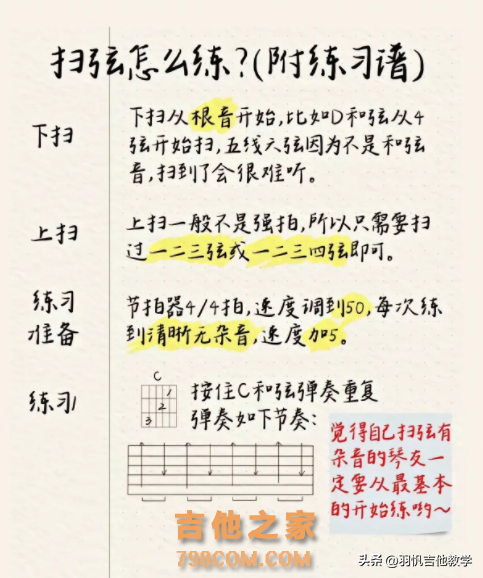 扫弦怎么练?(附练习谱)
下扫
下扫从根音开始,比如D和弦从4
弦开始扫,五线六弦因为不是和弦
音,扫到了会很难听。
上扫
上扫一般不是强拍,所以只需要扫
过一二三弦或一二三四弦即可。
练习
准备
节拍器4/4拍,速度调到50,每次练
到清晰无杂音,速度加5。
练习
C
1
2
3
按住C和弦弹奏重复
弹奏如下节奏:
觉得自己扫弦有
杂音的琴友一
定要从最基本
的开始练哟~
吉他之家
798COM.COM
头条 @羽忛吉他教学